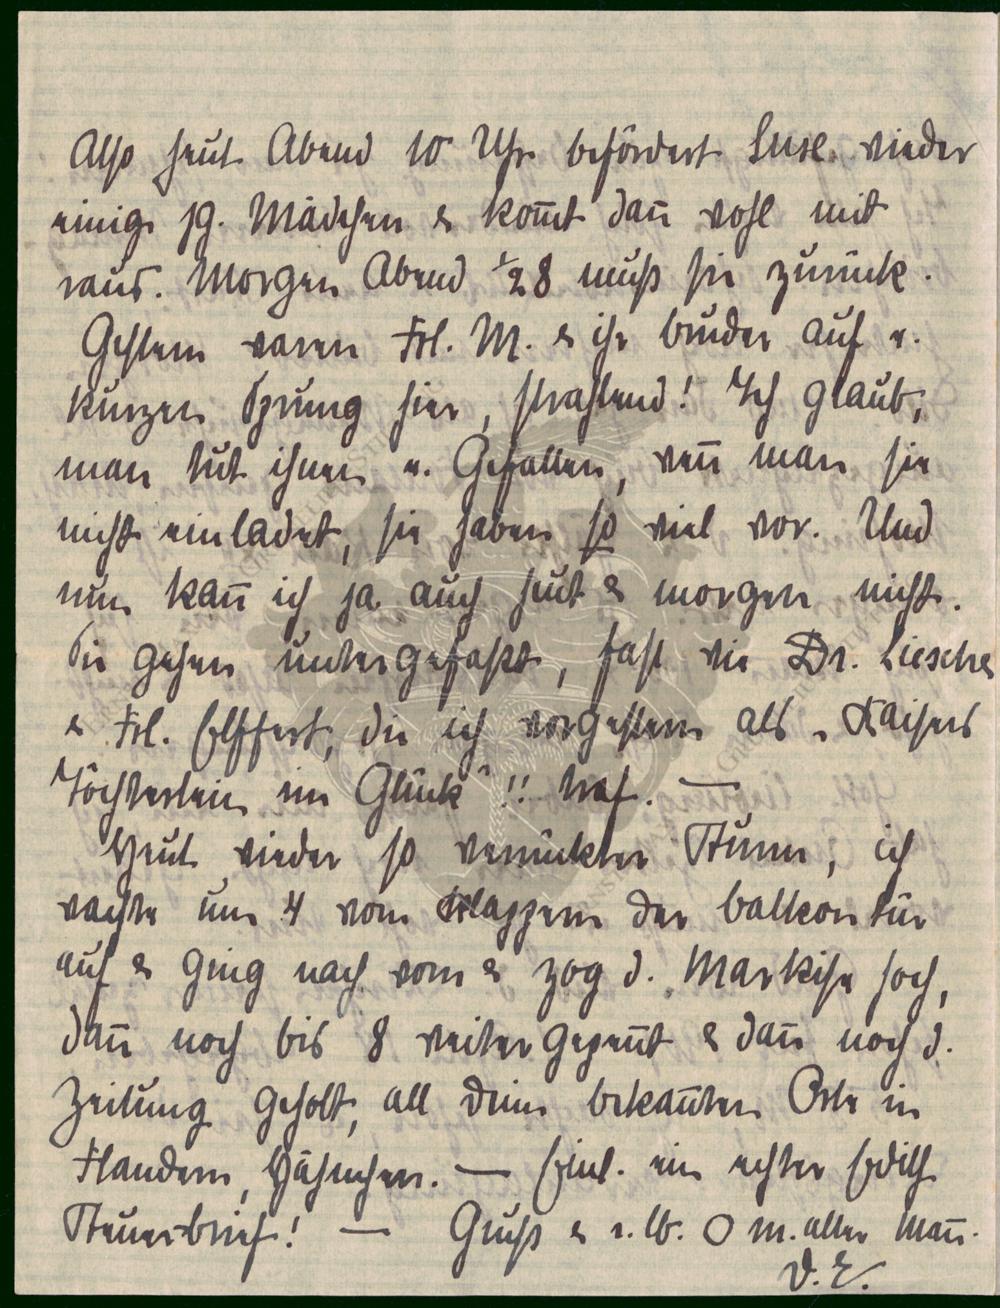 Also heut Abend 10 Uhr befördert Susel wieder
einige jg. Mädchen & kom̄t dan̄ wohl mit
raus. Morgen Abend ½8 muß sie zurück.
Gestern waren Frl. M. & ihr Bruder auf e.
kurzen Sprung hier, strahlend! Ich glaube,
man tut ihnen e. Gefallen, wen̄ man sie
nicht einladet, sie haben so viel vor. Und
nun kan̄ ich ja auch heut & morgen nicht.
Sie gehen untergefaßt, fast wie Dr. Liesche
& Frl. Elffert, die ich vorgestern als „Kaisers
Töchterlein im Glück“!! traf. —
Heut wieder so verrückter Sturm, ich
wachte um 4 vom Klappern der Balkontür
auf & ging nach vorn & zog d. Markise hoch,
dan̄ noch bis 8 weiter gepen̄t & dan̄ noch d.
Zeitung geholt, all deine bekan̄ten Orte in
Flandern, Hähnchen. — Einl. ein echter Edith
Steuerbrief! — Gruß & e. lb. O m. alter Man̄.
D. E.